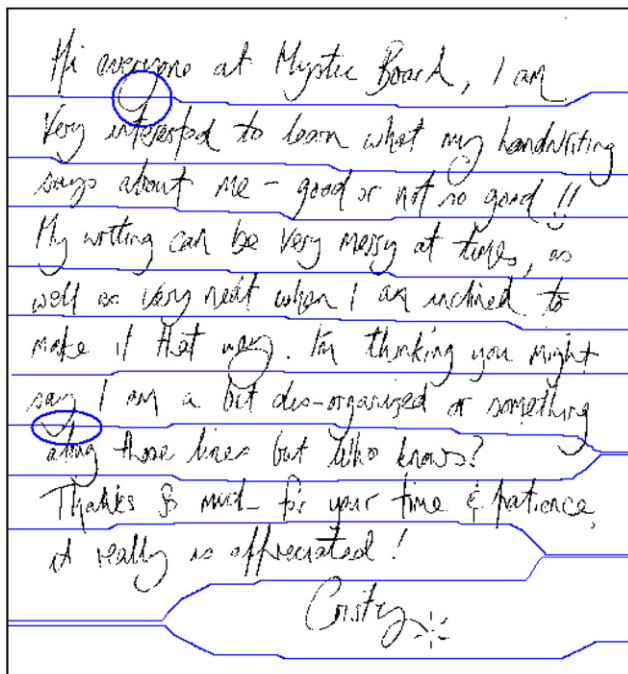 Hi everyone at Mystic Board, I am
very interested to learn what my handwriting
says about me - good or not so good !!
My writting can be very messy at times, as
well as very neat when I am inclined to
make it that way. I'm thinking you might
say I am a bit dis-organized or something
along those lines but who knows?
Thanks so much for your time & patience,
it really is appreciated!
Cristy